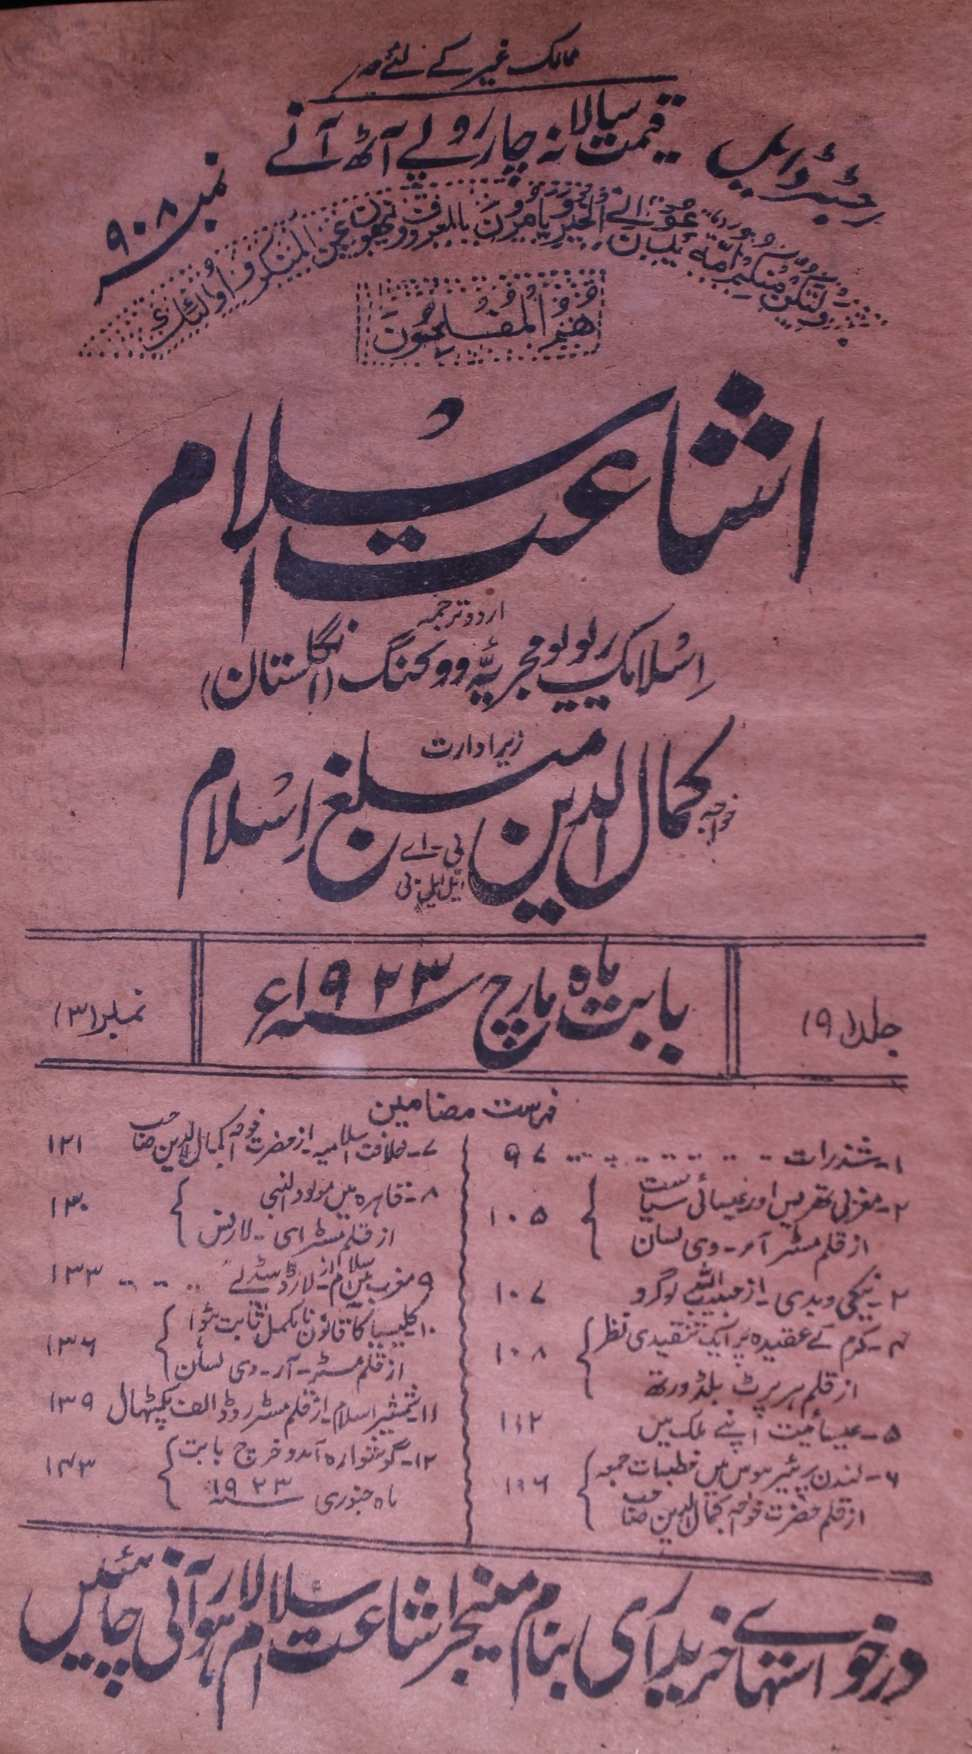 ممالک غیر کے لئے صر
قیمت سالانہ چار روپے آٹھ آنے
رجسٹرڈ ایل
نمبر ۹۰۸
ولتکن منکم امۃ یدعون الی الخیر و یامرون بالمعروف وینھون عن المنکر و اولٰئک
ھُمُ الْمُفْلِحُوْنَ
اشاعت اسلام
اردو ترجمہ
اسلامک ریویو مجریہ ووکنگ (انگلستان)
زیر ادارت
خواجہ کمال الدین بی-اے ایل ایل بی مبلغ اسلام
جلد (۹)
بابت ماہ مارچ سنہ ۱۹۲۳ء
نمبر (۳)
فہرست مضامین
۱- شذرات ۹۷
۲- مغربی تھریس اور عیسائی سیاست
از قلم مسٹر آر- وی لسان ۱۰۵
۳- نیکی و بدی- از حبیب اللہ لوگرو ۱۰۷
۴- کرم کے عقیدہ پر ایک تنقیدی نظر
از قلم ہربرٹ بلڈ ورتھ ۱۰۸
۵- عیسائیت اپنے ملک میں ۱۱۲
۶- لندن پریئر ہوس میں خطبات جمعہ
از قلم حضرت خواجہ کمال الدین صاحب ۱۱۶
۷- خلافت اسلامیہ- از حضرت خواجہ کمال الدین صاحب ۱۲۱
۸- قاہرہ میں مولود النبی
از قلم مسٹر ای- لارنس ۱۳۰
۹ مغرب میں اسلام- از لارڈ ہیڈلے ۱۳۳
۱۰- کلیسیا کا قانون نامکمل ثابت ہوا
از قلم مسٹر- آر- وی لسان ۱۳۶
۱۱- شمشیر اسلام- از قلم مسٹر روڈ الف پکتھال ۱۳۹
۱۲- گوشوارہ آمد و خرچ بابت
ماہ جنوری سنہ ۱۹۲۳ ۱۴۳
درخواستہائے خریداری بنام مینیجر اشاعت اسلام لاہور آنی چاہئیں